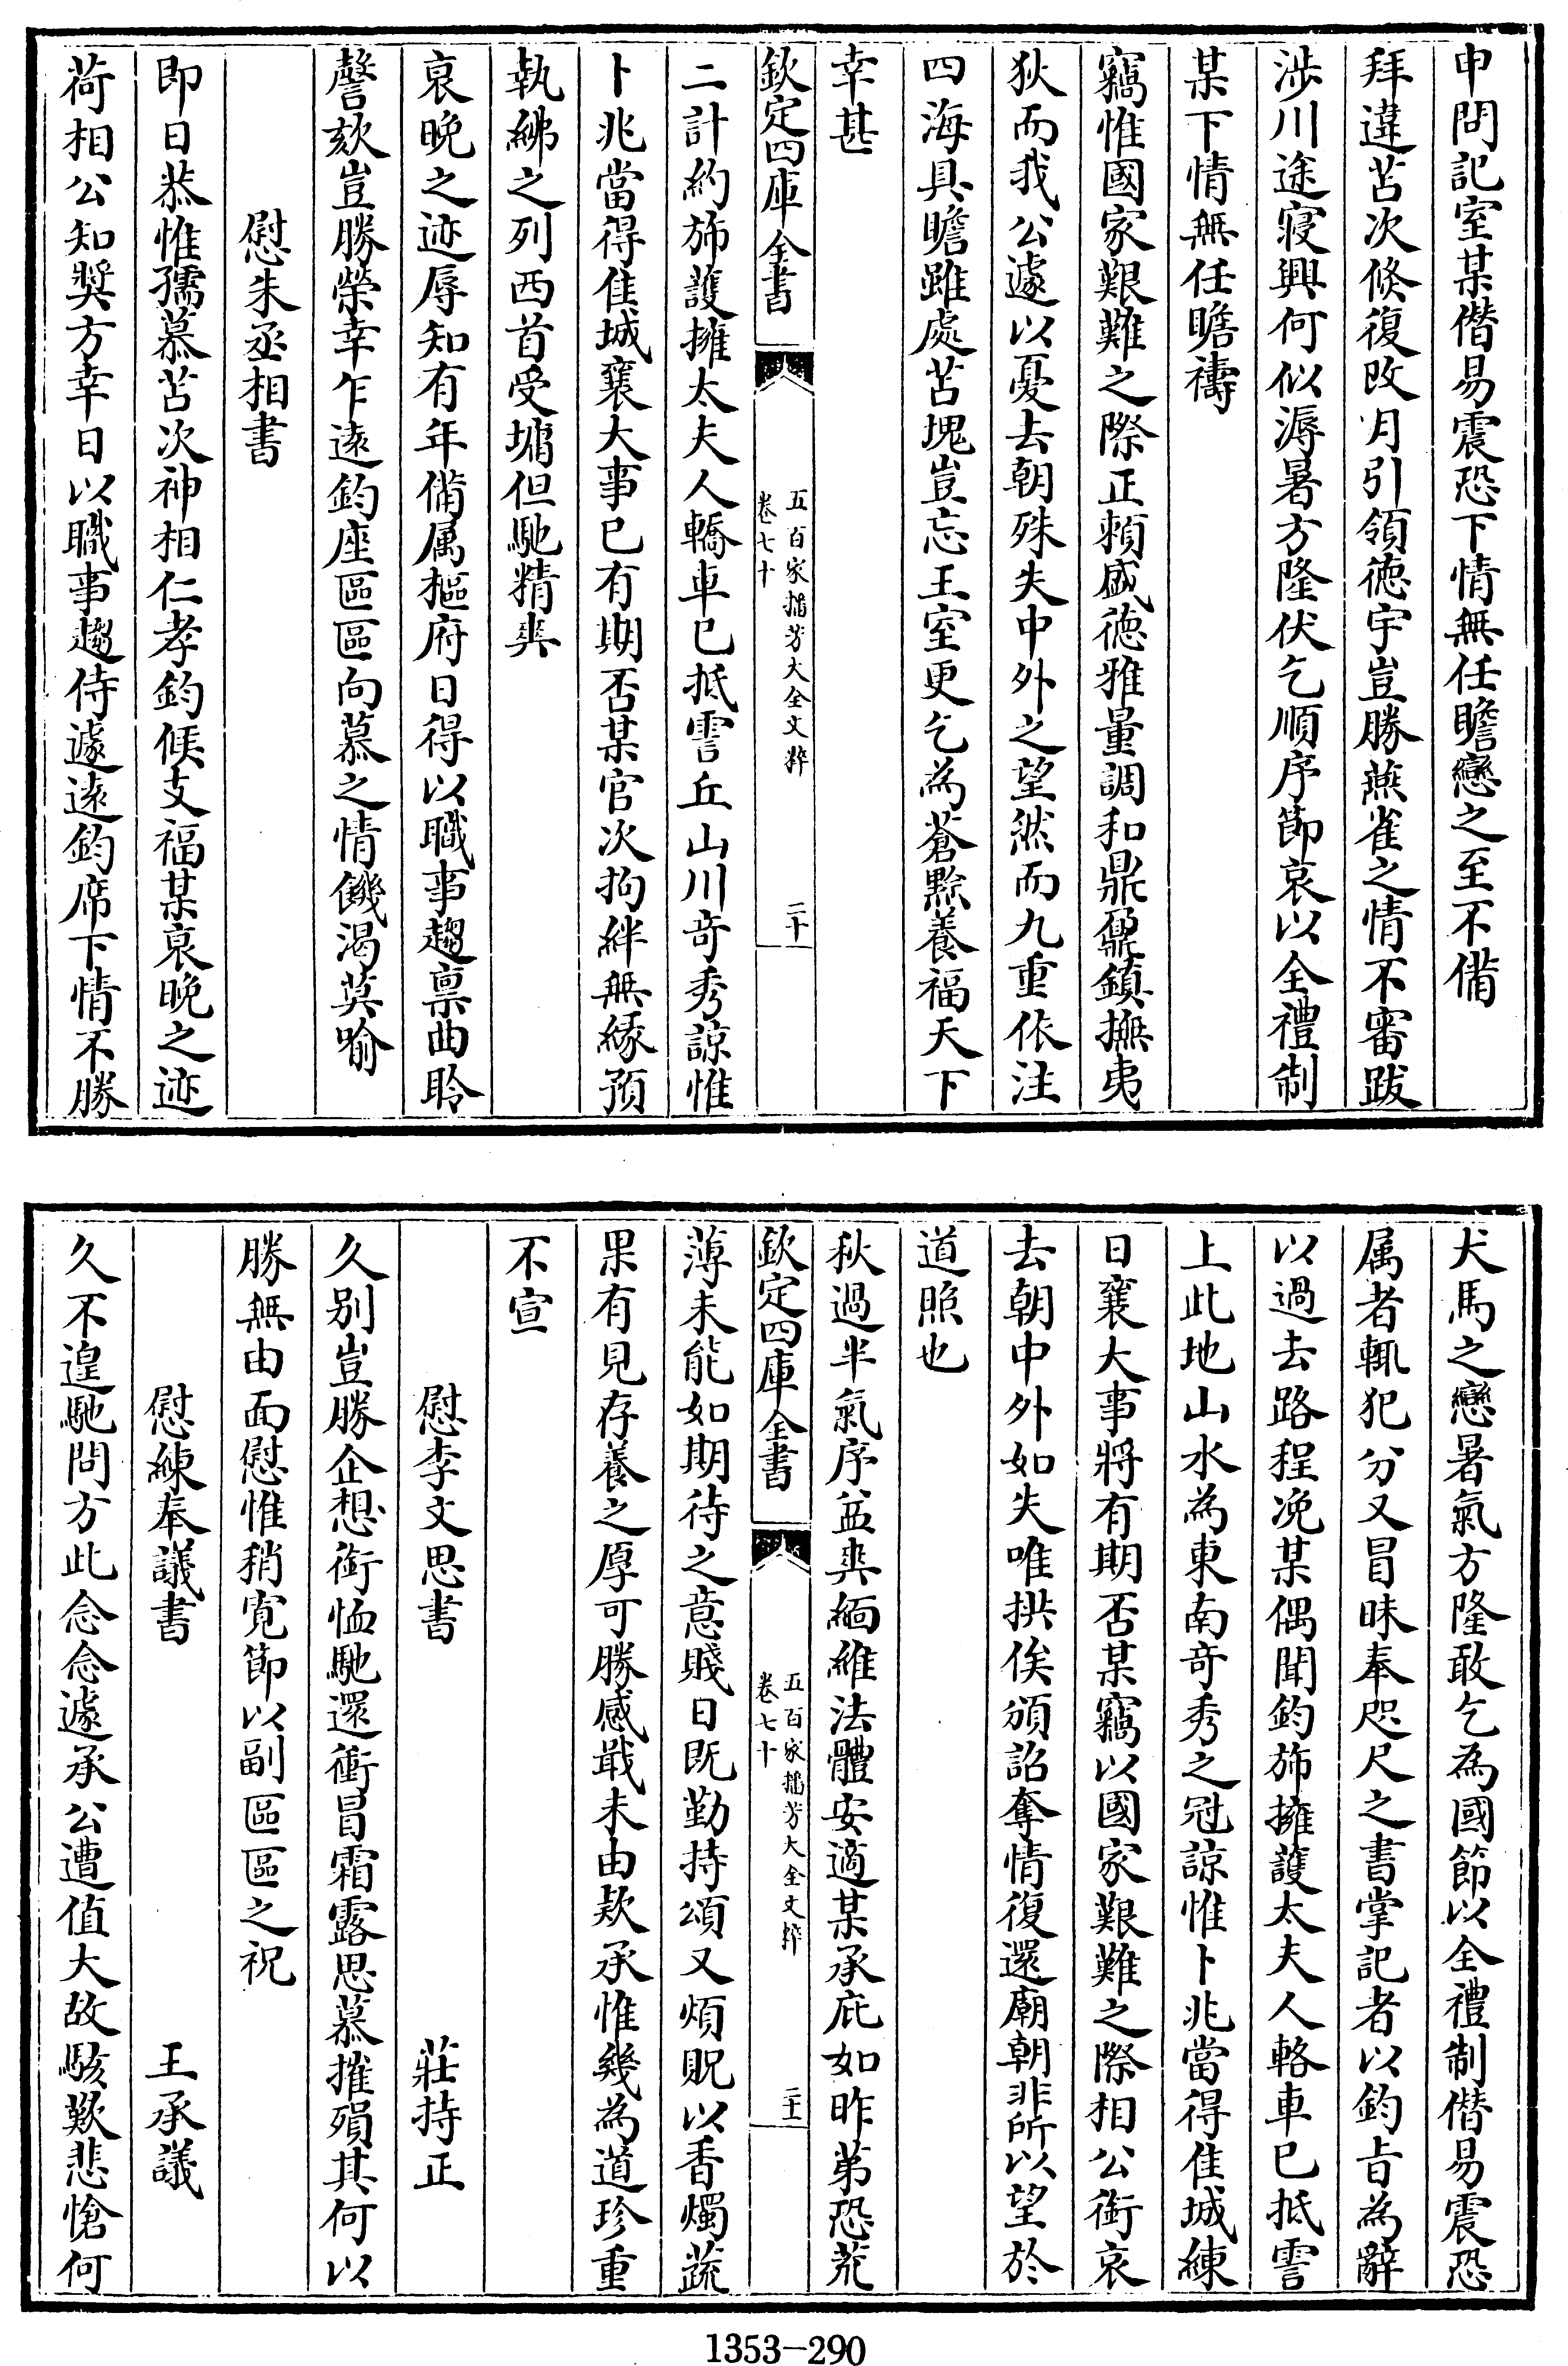 申問記室某僭易震恐下情無任瞻戀之至不備
拜違苫次倐復改月引領徳宇豈勝燕雀之情不審跋
渉川途寝興何似溽暑方隆伏乞順序節哀以全禮制
某下情無任瞻禱
竊惟國家艱難之際正頼盛徳雅量調和鼎鼐鎮撫夷
狄而我公遽以憂去朝殊失中外之望然而九重依注
四海具瞻雖處苫塊豈忘王室更乞為蒼黔養福天下
幸甚
欽定四庫全書
五百家播芳大全文粹
卷七十
二十
二計約斾護擁太夫人轎車已抵霅丘山川奇秀諒惟
卜兆當得佳城襄大事已有期否某官次拘絆無縁預
執紼之列西首受墉但馳精爽
哀晚之迹辱知有年備属樞府日得以職事趨禀曲聆
謦欬豈勝榮幸乍逺鈞座區區向慕之情饑渴莫喻
慰朱丞相書
即日恭惟孺慕苫次神相仁孝鈞候支福某哀晚之迹
荷相公知奬方幸日以職事趨侍遽逺鈞席下情不勝
犬馬之戀暑氣方隆敢乞為國節以全禮制僭易震恐
属者輒犯分又冒昧奉咫尺之書掌記者以鈞㫖為辭
以過去路程浼某偶聞鈞斾擁護太夫人輅車已抵霅
上此地山水為東南奇秀之冠諒惟卜兆當得佳城練
日襄大事將有期否某竊以國家艱難之際相公銜哀
去朝中外如失唯拱俟頒詔奪情復還廟朝非所以望於
道照也
秋過半氣序益爽緬維法體安適某承庇如昨苐恐荒
欽定四庫全書
五百家播芳大全文粹
卷七十
二十一
薄未能如期待之意賤日既勤持頌又煩貺以香燭蔬
果有見存養之厚可勝感戢未由欵承惟幾為道珍重
不宣
慰李文思書　莊持正
久别豈勝企想銜恤馳還衝冒霜露思慕摧殞其何以
勝無由面慰惟稍寛節以副區區之祝
慰練奉議書　王承議
久不遑馳問方此念念遽承公遭值大故駭歎悲愴何
1353-290